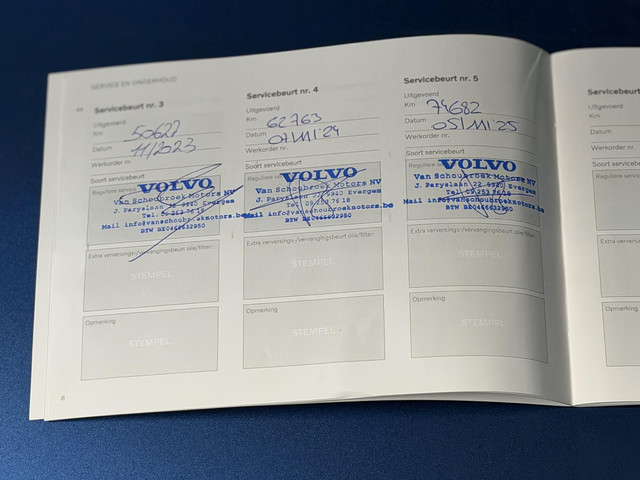 SERVICE EN ONDERHOUD
Servicebeurt nr. 3
Uitgevoerd
Km 50627
Datum 11/2023
Werkorder nr.
Soort servicebeurt
Reguliere service
VOLVO
Van Schoubroek Motors NV
J. Paryslaan 22 9940 Evergem
Tel. 09 253 76 18
Mail info@vanschoubroekmotors.be
BTW BE0466632950
Extra verversings-/vervangingsbeurt olie/filter:
STEMPEL
Opmerking
STEMPEL
8
Servicebeurt nr. 4
Uitgevoerd
Km 62763
Datum 07/11/24
Werkorder nr.
Soort servicebeurt
Reguliere
VOLVO
Van Schoubroek Motors NV
J. Paryslaan 22 9940 Evergem
Tel. 09 253 76 18
Mail info@vanschoubroekmotors.be
BTW BE0466632950
Extra verversings-/vervangingsbeurt olie/filter:
STEMPEL
Opmerking
STEMPEL
Servicebeurt nr. 5
Uitgevoerd
Km 74682
Datum 05/11/25
Werkorder nr.
Soort servicebeurt
Reguliere
VOLVO
Van Schoubroek Motors NV
J. Paryslaan 22 9940 Evergem
Tel. 09 253 76 18
Mail info@vanschoubroekmotors.be
BTW BE0466632950
Extra verversings-/vervangingsbeurt olie/filter:
STEMPEL
Opmerking
STEMPEL